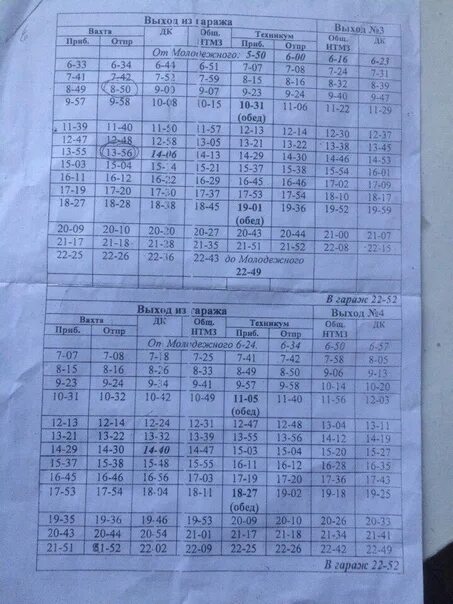 Выход из гаража Выход №3
Вахта ДК Общ. НТМЗ Техникум Общ. НТМЗ ДК
Приб. Отпр Приб. Отпр
От Молодежного: 5-50 6-00 6-16 6-23
6-33 6-34 6-44 6-51 7-07 7-08 7-24 7-31
7-41 7-42 7-52 7-59 8-15 8-16 8-32 8-39
8-49 8-50 9-00 9-07 9-23 9-24 9-40 9-47
9-57 9-58 10-08 10-15 10-31 (обед) 11-06 11-22 11-29
11-39 11-40 11-50 11-57 12-13 12-14 12-30 12-37
12-47 12-48 12-58 13-05 13-21 13-22 13-38 13-45
13-55 13-56 14-06 14-13 14-29 14-30 14-46 14-53
15-03 15-04 15-14 15-21 15-37 15-38 15-54 16-01
16-11 16-12 16-22 16-29 16-45 16-46 17-02 17-09
17-19 17-20 17-30 17-37 17-53 17-54 18-10 18-17
18-27 18-28 18-38 18-45 19-01 (обед) 19-36 19-52 19-59
20-09 20-10 20-20 20-27 20-43 20-44 21-00 21-07
21-17 21-18 21-28 21-35 21-51 21-52 22-08 22-15
22-25 22-26 22-36 22-43 до Молодежного 22-49
В гараж 22-52
Выход из гаража Выход №4
Вахта ДК Общ. НТМЗ Техникум Общ. НТМЗ ДК
Приб. Отпр Приб. Отпр
От Молодежного 6-24 6-34 6-50 6-57
7-07 7-08 7-18 7-25 7-41 7-42 7-58 8-05
8-15 8-16 8-26 8-33 8-49 8-50 9-06 9-13
9-23 9-24 9-34 9-41 9-57 9-58 10-14 10-20
10-31 10-32 10-42 10-49 11-05 (обед) 11-40 11-56 12-03
12-13 12-14 12-24 12-31 12-47 12-48 13-04 13-11
13-21 13-22 13-32 13-39 13-55 13-56 14-12 14-19
14-29 14-30 14-40 14-47 15-03 15-04 15-20 15-27
15-37 15-38 15-48 15-55 16-11 16-12 16-28 16-35
16-45 16-46 16-56 17-03 17-19 17-20 17-36 17-43
17-53 17-54 18-04 18-11 18-27 (обед) 19-02 19-18 19-25
19-35 19-36 19-46 19-53 20-09 20-10 20-26 20-33
20-43 20-44 20-54 21-01 21-17 21-18 21-34 21-41
21-51 21-52 22-02 22-09 22-25 22-26 22-42 22-49
В гараж 22-52